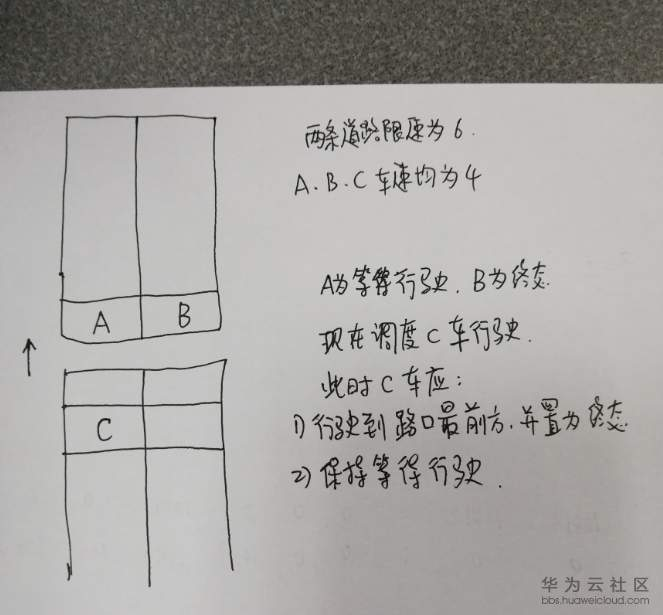 两条道路限速为6.
A.B.C车速均为4
A为等待行驶.B为终态
A
B
现在调度C车行驶.
此时C车应:
C
1)行驶到路口最前方,并置为终态
2)保持等待行驶.
华为云社区
bbs.huaweicloud.com